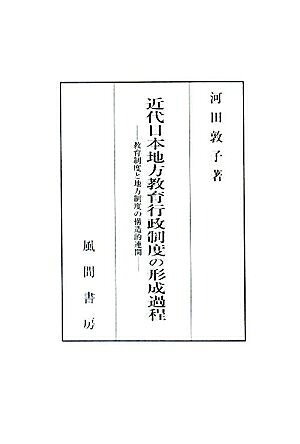 河田敦子著
近代日本地方教育行政制度の形成過程
―教育制度と地方制度の構造的連関―
風間書房